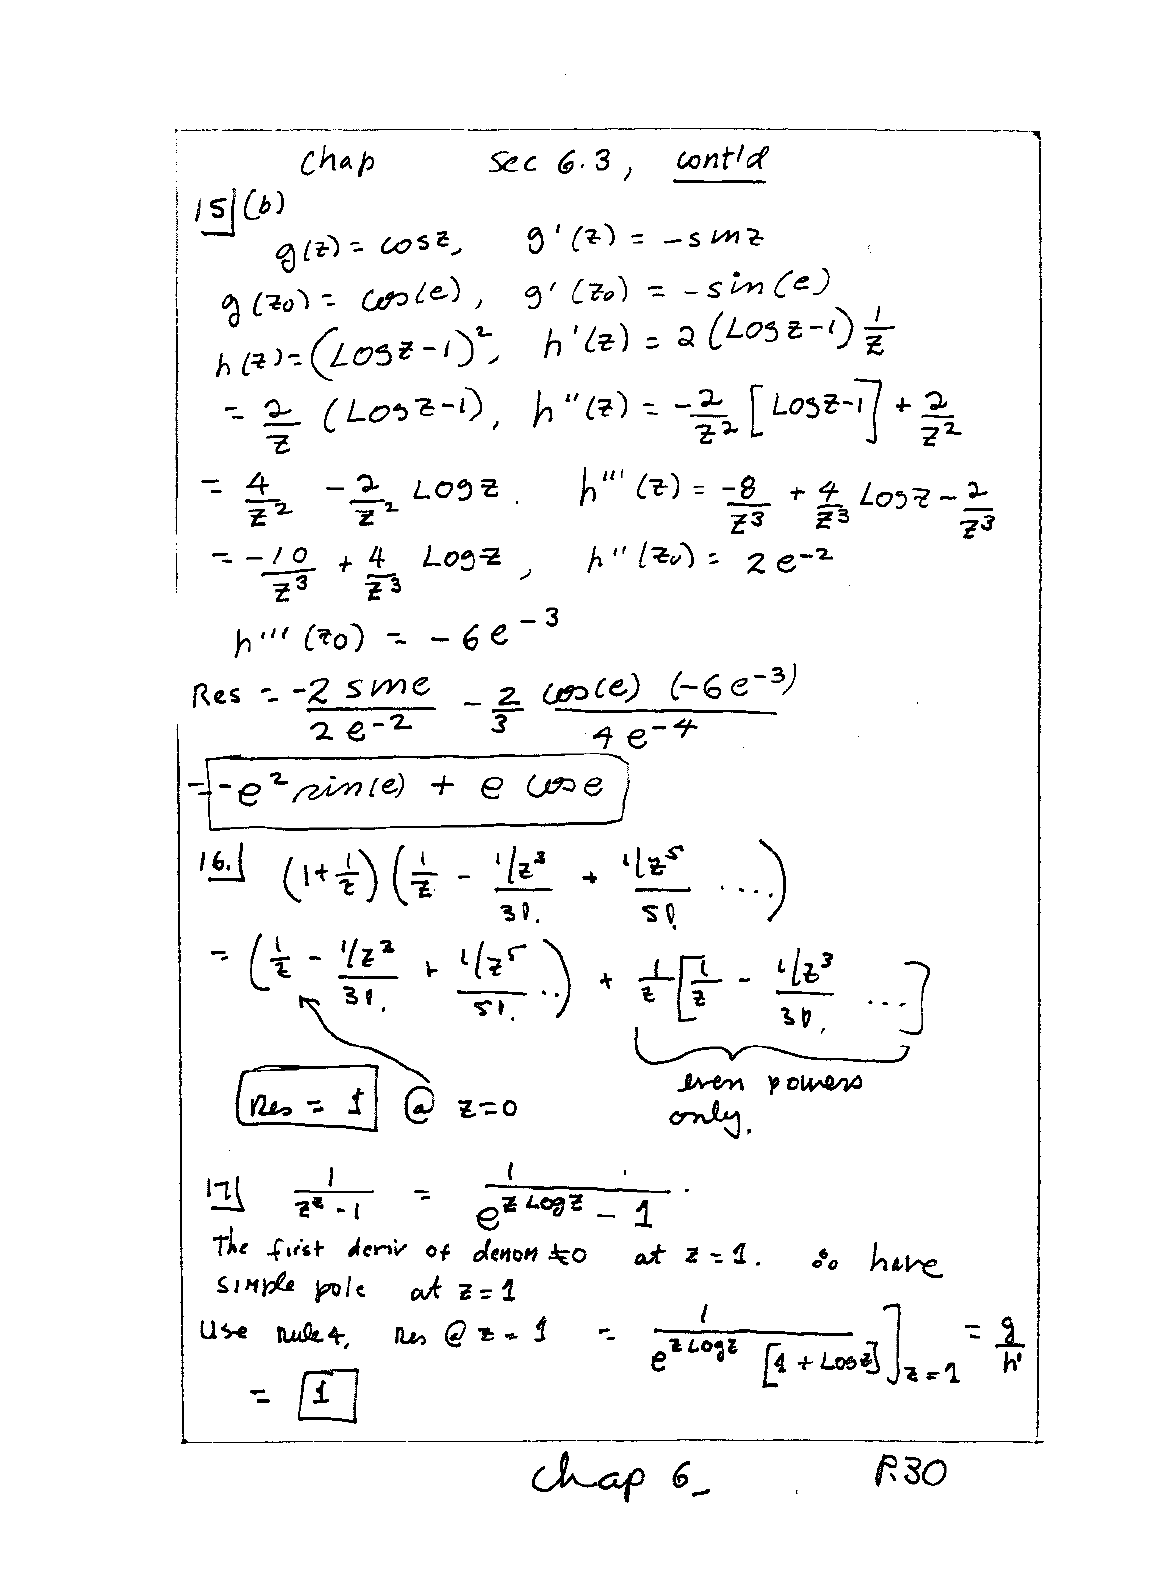 Chap Sec 6.3, cont'd
15|(b)
g(z) = cosz, g'(z) = -sinz
g(z0) = cos(e), g'(z0) = -sin(e)
h(z) = (Log z-1)^2, h'(z) = 2(Log z-1) 1/z
= 2/z (Log z-1), h''(z) = -2/z^2 [Log z-1] + 2/z^2
= 4/z^2 - 2/z^2 Log z. h'''(z) = -8/z^3 + 4/z^3 Log z - 2/z^3
= -10/z^3 + 4/z^3 Log z, h''(z0) = 2e^-2
h'''(z0) = -6e^-3
Res = -2 sine / 2e^-2 - 2/3 cos(e) (-6e^-3) / 4e^-4
= -e^2 sin(e) + e cos e
16.| (1+1/z) (1/z - 1/z^3 / 3! + 1/z^5 / 5! ....)
= (1/z - 1/z^3 / 3! + 1/z^5 / 5! ..) + 1/z [1/z - 1/z^3 / 3! ...]
even powers
Res = 1 @ z=0 only.
17| 1/(z^z - 1) = 1/(e^(z Log z) - 1)
The first deriv of denom ≠0 at z=1. So have
simple pole at z=1
Use Rule 4, Res @ z=1 = 1/(e^(z Log z) [1 + Log z])]z=1 = g/h'
= 1
Chap 6 P.30